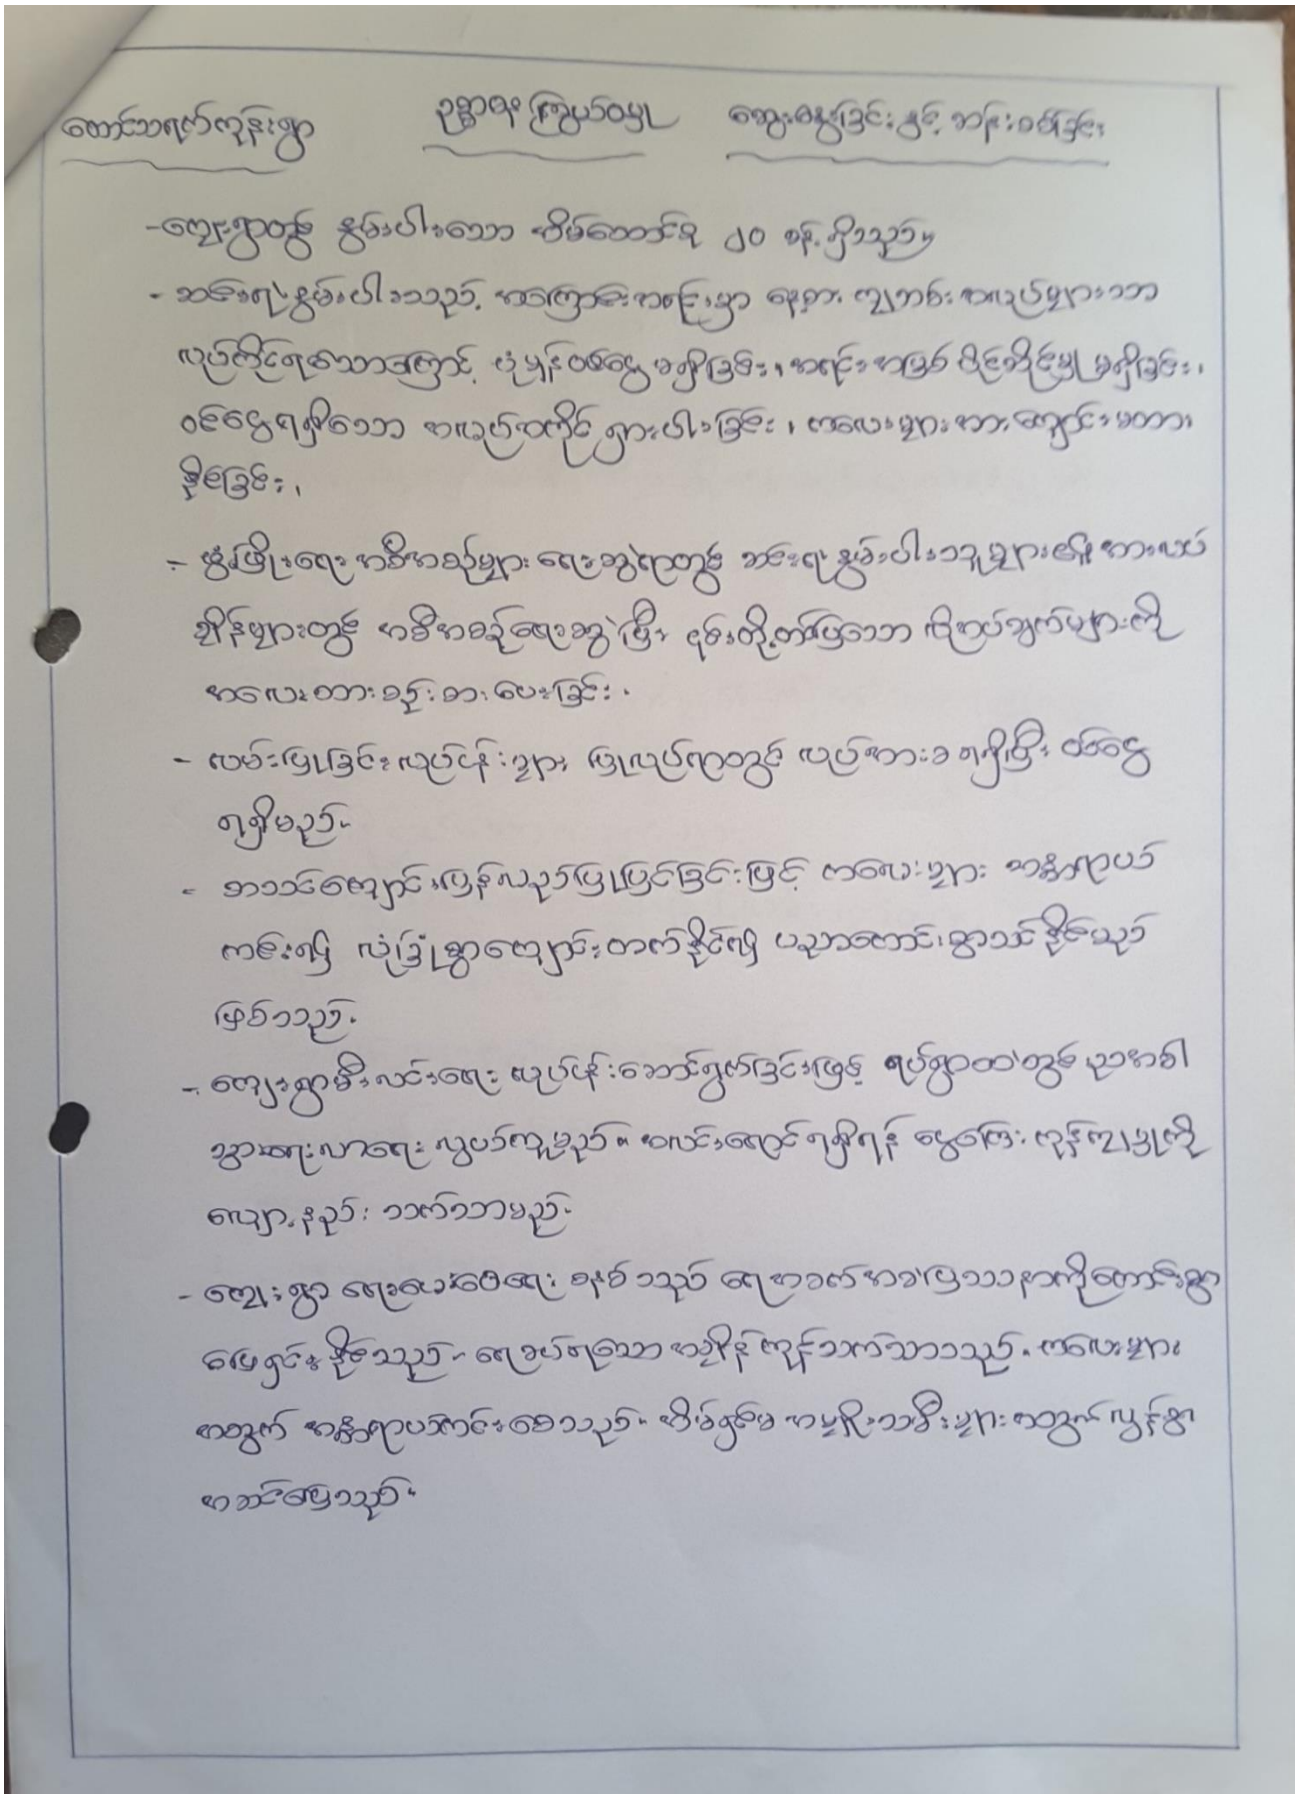 တောင်သရက်ကုန်းရွာ ဥစ္စာဓန ကြွယ်ဝမှု ဆွေးနွေးခြင်း နှင့် ဆန်းစစ်ခြင်း
-ကျေးရွာတွင် နွမ်းပါးသော အိမ်ထောင်စု ၂၀ ခန့် ရှိသည်။
- ဆင်းရဲနွမ်းပါးသည့် အကြောင်းအရင်းမှာ နေ့စား ကျဘမ်း အလုပ်များသာ
လုပ်ကိုင်ရသောကြောင့် ပုံမှန်ဝင်ငွေ မရှိခြင်း၊ အရင်းအမြစ် ပိုင်ဆိုင်မှု မရှိခြင်း၊
ဝင်ငွေရရှိသော အလုပ်အကိုင် ရှားပါးခြင်း၊ ကလေးများအား ကျောင်းမထား
နိုင်ခြင်း၊
- ဖွံ့ဖြိုးရေး အစီအစဉ်များ ရေးဆွဲရာတွင် ဆင်းရဲ နွမ်းပါးသူများ၏ အားလပ်
ချိန်များတွင် အစီအစဉ်ရေးဆွဲပြီး ၎င်းတို့တင်ပြသော လိုအပ်ချက်များကို
အလေးထားစဉ်းစားပေးခြင်း.
- လမ်းပြုပြင်းလုပ်ငန်းများ ပြုလုပ်ရာတွင် လုပ်အားခ ရရှိပြီး ဝင်ငွေ
ရရှိမည်.
- စာသင်ကျောင်းပြန်လည်ပြုပြင်ခြင်းဖြင့် ကလေးများ အန္တရာယ်
ကင်း၍ လုံခြုံစွာကျောင်းတက်နိုင်၍ ပညာကောင်းစွာသင်နိုင်မည်
ဖြစ်သည်.
- ကျေးရွာမီးလင်းရေး လုပ်ငန်းဆောင်ရွက်ခြင်းဖြင့် ရပ်ရွာထဲတွင် ညအခါ
သွားရေးလာရေး လွယ်ကူမည်။ အလင်းရောင်ရရှိရန် ငွေကြေး ကုန်ကျမှုကို
လျော့နည်း သက်သာမည်.
- ကျေးရွာ ရေပေးဝေရေး စနစ်သည် ရေအခက်အခဲပြဿနာကိုကောင်းစွာ
ဖြေရှင်းနိုင်သည်. ရေခပ်ရသော အချိန်ကုန်သက်သာသည်. ကလေးများ
အတွက် အန္တရာယ်ကင်းစေသည်. အိမ်ရှင်မ အမျိုးသမီးများအတွက် လွန်စွာ
အဆင်ပြေသည်။